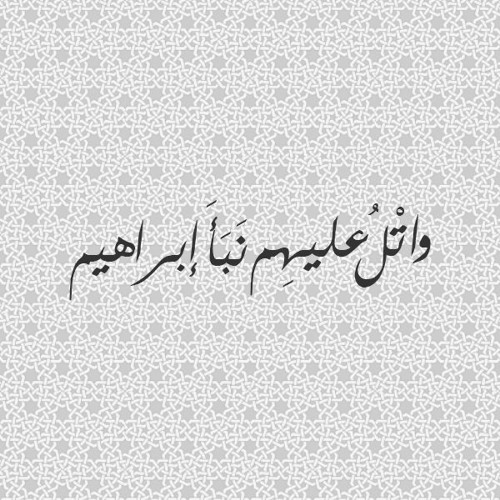 واتْلُ عليهِم نَبَأَ إبراهيم